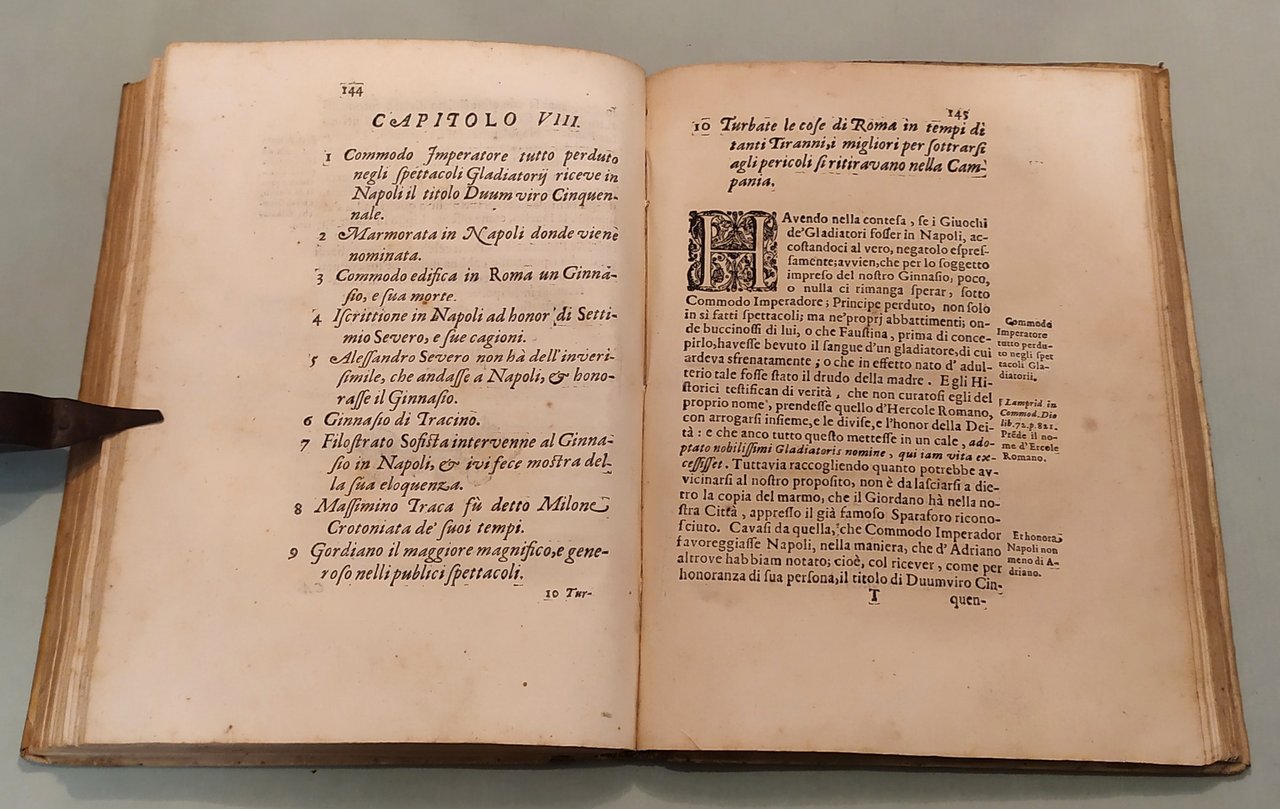 144
CAPITOLO VIII.
1 Commodo Imperatore tutto perduto
negli spettacoli Gladiatorij riceve in
Napoli il titolo Duum viro Cinquen-
nale.
2 Marmorata in Napoli donde viene
nominata.
3 Commodo edifica in Roma un Ginna-
sio, e sua morte.
4 Iscrittione in Napoli ad honor di Setti-
mio Severo, e sue cagioni.
5 Alessandro Severo non hà dell'inveri-
simile, che andasse a Napoli, & hono-
rasse il Ginnasio.
6 Ginnasio di Tracino.
7 Filostrato Sofista intervenne al Ginna-
sio in Napoli, & ivi fece mostra del-
la sua eloquenza.
8 Massimino Traca fù detto Milone
Crotoniata de' suoi tempi.
9 Gordiano il maggiore magnifico, e gene-
roso nelli publici spettacoli.
10 Tur-
145
10 Turbate le cose di Roma in tempi di
tanti Tiranni, i migliori per sottrarsi
agli pericoli si ritiravano nella Cam-
pania.
HAvendo nella contesa, se i Giuochi
de' Gladiatori fosser in Napoli, ac-
costandoci al vero, negatolo espres-
samente; avvien, che per lo soggetto
impreso del nostro Ginnasio, poco,
o nulla ci rimanga sperar, sotto
Commodo Imperadore; Principe perduto, non solo
in sì fatti spettacoli; ma ne' proprj abbattimenti; on-
de buccinossi di lui, o che Faustina, prima di conce-
pirlo, havesse bevuto il sangue d'un gladiatore, di cui
ardeva sfrenatamente; o che in effetto nato d' adul-
terio tale fosse stato il drudo della madre. E gli Hi-
storici testifican di verità, che non curatosi egli del
proprio nome, prendesse quello d'Hercole Romano,
con arrogarsi insieme, e le divise, e l'honor della Dei-
tà: e che anco tutto questo mettesse in un cale, ado-
ptato nobilissimi Gladiatoris nomine, qui iam vita ex-
cessisset. Tuttavia raccogliendo quanto potrebbe av-
vicinarsi al nostro proposito, non è da lasciarsi a die-
tro la copia del marmo, che il Giordano hà nella no-
stra Città, appresso il già famoso Spataforo ricono-
sciuto. Cavasi da quella, che Commodo Imperador
favoreggiasse Napoli, nella maniera, che d' Adriano
altrove habbiam notato; cioè, col ricever, come per
honoranza di sua persona, il titolo di Duumviro Cin-
T
quen-
Commodo
Imperatore
tutto perdu-
to negli spet
tacoli Gla-
diatorii.
Lamprid. in
Commod. Dio
lib. 72. p. 821.
Prẽde il no-
me d'Ercole
Romano.
Et honora
Napoli non
meno di A-
driano.